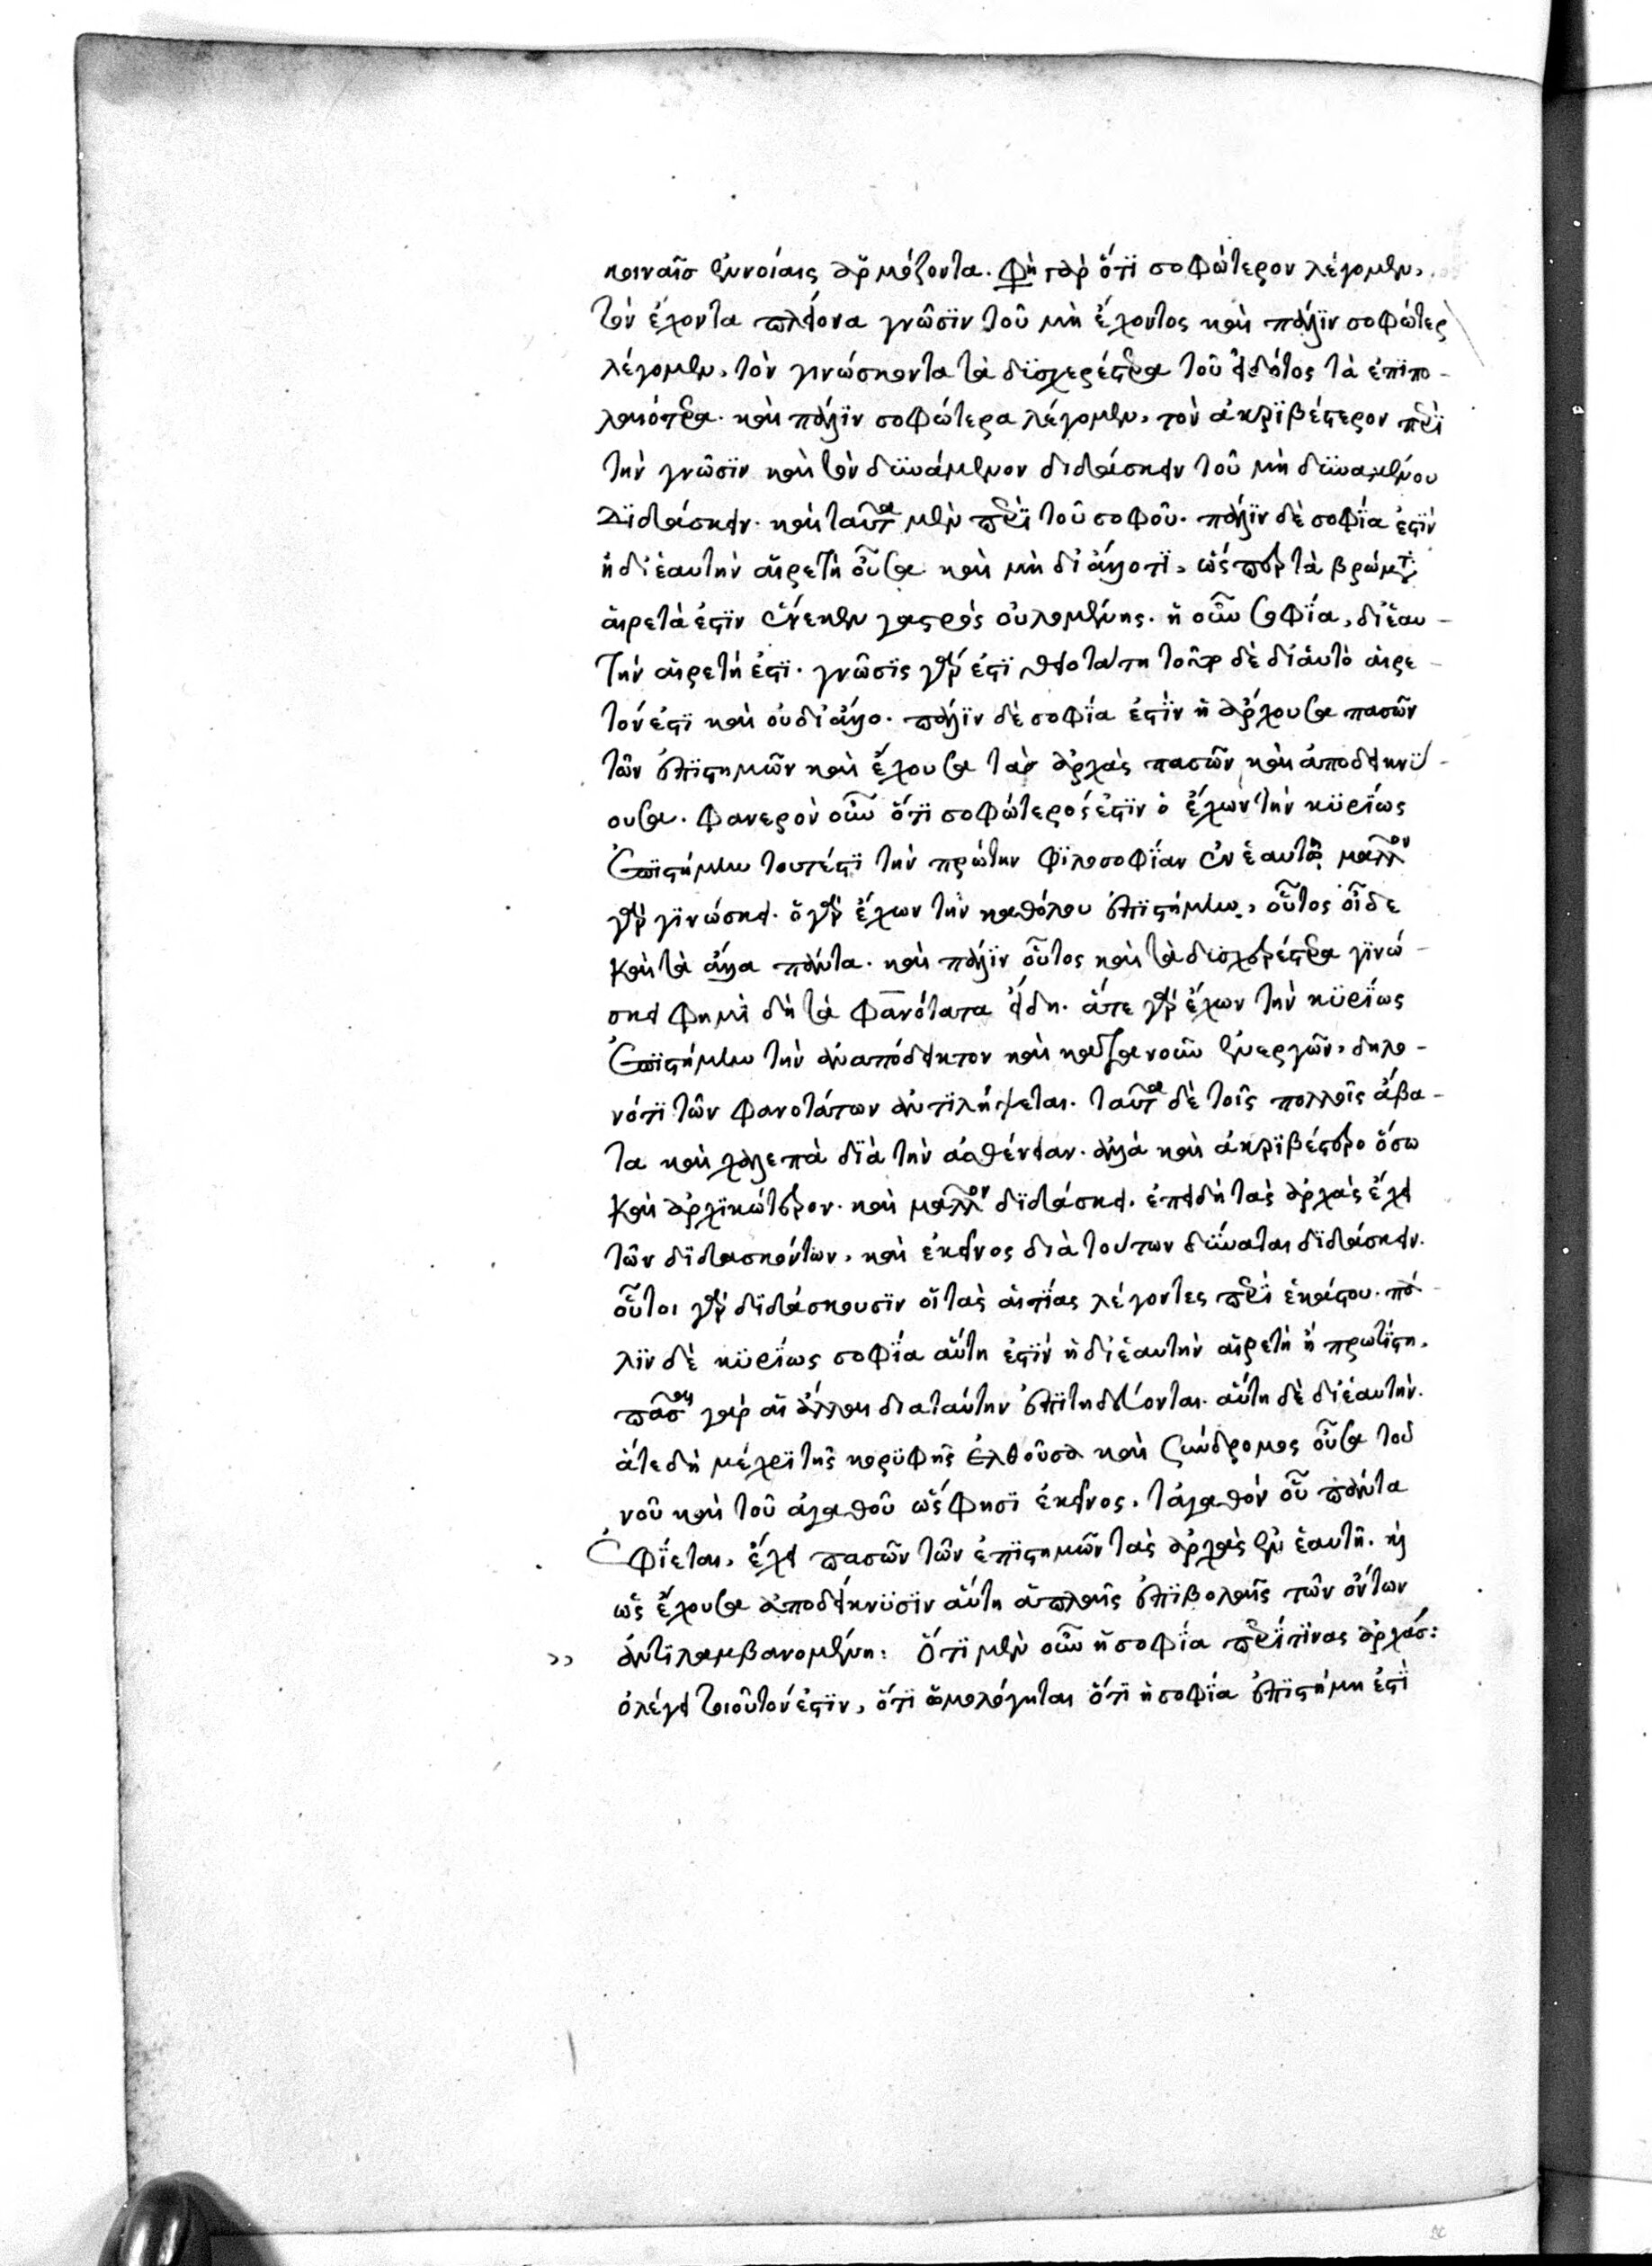 κοιναῖσ ἐννοίαις ἁρμόζοντα. Φη γὰρ ὅτϊ σοφώτερον λέγομεν,
τὸν ἔχοντα πλείονα γνῶσϊν τοῦ μὴ ἔχοντος καὶ πάλϊν σοφώτερ
λέγομεν, τὸν γινώσκοντα τὰ δϋσχερέστερα τοῦ εἰδότος τὰ ἐπϊπο-
λαιότερα. καὶ πάλϊν σοφώτερα λέγομεν, τὸν ἀκρϊβέστερον περὶ
τὴν γνῶσϊν καὶ τὸν δϋνάμενον διδάσκειν τοῦ μὴ δϋναμένου
Δϊδάσκειν. καὶ ταῦτα μὲν περὶ τοῦ σοφοῦ. πάλϊν δὲ σοφΐα ἐστϊν
ἡ δι ἑαυτὴν αἱρετὴ οὖσα καὶ μὴ δι ἄλλο τϊ, ὥσπερ τὰ βρώματα
αἱρετὰ ἐστϊν ἕνεκεν γαστρὸς οὐλομένης. ἡ οὖν σοφΐα, δι ἑαυ-
τὴν αἱρετή ἐστϊ. γνῶσϊς γάρ ἐστϊ θειοτάτη τοῦτο δὲ δι αὐτὸ αἱρε-
τόν ἐστϊ καὶ οὐ δι ἄλλο. πάλϊν δὲ σοφΐα ἐστϊν ἡ ἄρχουσα πασῶν
τῶν ἐπϊστημῶν καὶ ἔχουσα τὰσ ἀρχὰς πασῶν καὶ ἀποδεικνϋ-
ουσα. Φανερὸν οὖν ὅτϊ σοφώτερός ἐστϊν ὁ ἔχων τὴν κϋρΐως
ἐπϊστήμην τουτέστϊ τὴν πρώτην φϊλοσοφΐαν ἐν ἑαυτῶ μᾶλλον
γὰρ γϊνώσκει. ὁ γὰρ ἔχων τὴν καθόλου ἐπϊστήμην, οὗτος οἶδε
καὶ τὰ ἄλλα πάντα. καὶ πάλϊν οὗτος καὶ τὰ δϋσχερέστερα γϊνώ-
σκει φημὶ δὴ τὰ φανότατα εἴδη. ἅτε γὰρ ἔχων τὴν κϋρΐως
ἐπϊστήμην τὴν ἀναπόδεικτον καὶ κατὰ νοῦν ἐνεργῶν, δηλο-
νότϊ τῶν φανοτάτων ἀντϊλήψεται. ταῦτα δὲ τοῖς πολλοῖς ἄβα-
τα καὶ χαλεπὰ δϊὰ τὴν ἀσθένειαν. ἀλλὰ καὶ ἀκρϊβέστερο ὅσω
καὶ ἀρχϊκώτερον. καὶ μᾶλλον δϊδάσκει. ἐπειδὴ τὰς ἀρχὰς ἔχει
τῶν δϊδασκόντων, καὶ ἐκεῖνος διὰ τούτων δϋναται δϊδάσκειν.
οὗτοι γὰρ δϊδάσκουσϊν οἱ τὰς αἰτΐας λέγοντες περὶ ἑκάστου. πά-
λϊν δὲ κϋρΐως σοφΐα αὕτη ἐστϊν ἡ δι ἑαυτὴν αἱρετὴ ἡ πρωτϊστη.
πᾶσαι γὰρ αἱ ἄλλαι δια ταύτην ἐπϊτηδεύονται. αὕτη δὲ δι ἑαυτήν.
ἅτε δὴ μέχρϊ τῆς κορϋφῆς ἐλθοῦσα καὶ σύνδρομος οὖσα τοῦ
νοῦ καὶ τοῦ ἀγαθοῦ ὥς φησϊ ἐκεῖνος. τἀγαθόν οὗ πάντα
ἐφΐεται, ἔχει πασῶν τῶν ἐπϊστημῶν τὰς ἀρχὰς ἐν ἑαυτῆ. καὶ
ὡς ἔχουσα ἀποδείκνϋσϊν αὕτη ἁπλαῖς ἐπϊβολαῖς τῶν ὄντων
ἀντϊλαμβανομένη: Ὅτϊ μὲν οὖν ἡ σοφΐα περί τϊνας ἀρχάσ:
ὃ λέγει τοιοῦτόν ἐστϊν, ὅτϊ ὡμολόγηται ὅτϊ ἡ σοφΐα ἐπϊστήμη ἐστϊ